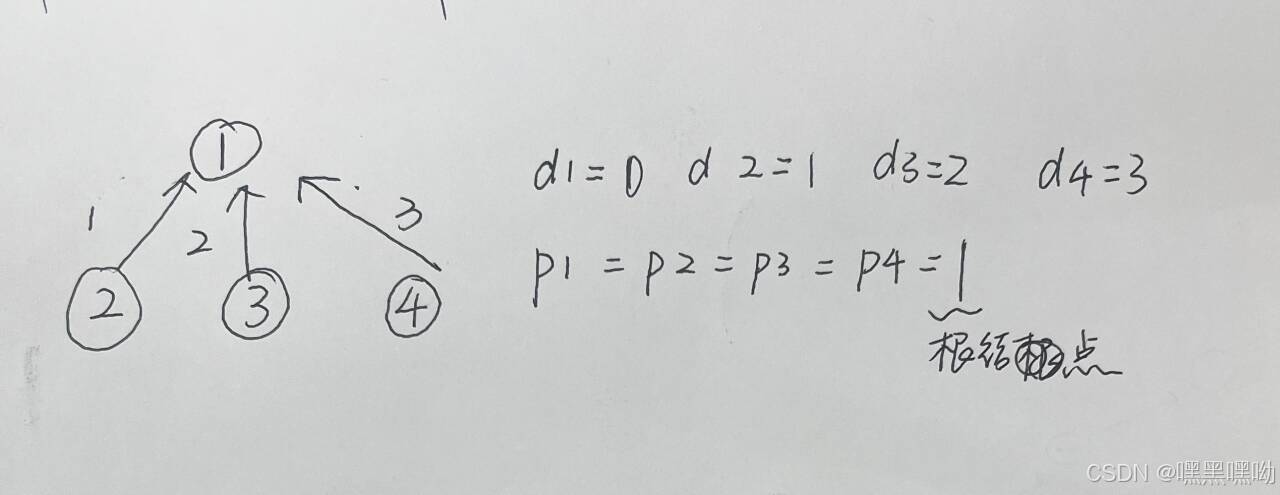 1
1 2 3
2 3 4
d1=0 d2=1 d3=2 d4=3
p1=p2=p3=p4=1
根结点
CSDN @嘿黑嘿呦